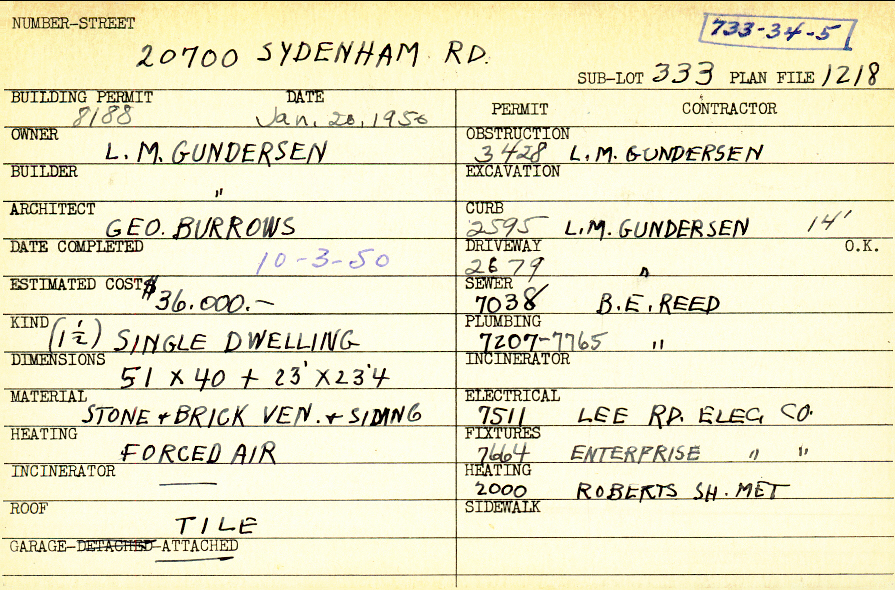 NUMBER-STREET
733-34-5
20700 SYDENHAM RD.
SUB-LOT 333 PLAN FILE 1218
BUILDING PERMIT DATE
8188 Jan. 20, 1950
OWNER
L. M. GUNDERSEN
BUILDER
"
ARCHITECT
GEO. BURROWS
DATE COMPLETED
10-3-50
ESTIMATED COST $36.000.—
KIND (1½) SINGLE DWELLING
DIMENSIONS
51 X 40 + 23' X 23'4
MATERIAL
STONE + BRICK VEN. + SIDING
HEATING
FORCED AIR
INCINERATOR
—
ROOF
TILE
GARAGE-DETACHED-ATTACHED
PERMIT CONTRACTOR
OBSTRUCTION
3428 L.M. GUNDERSEN
EXCAVATION
CURB
2595 L.M. GUNDERSEN 14'
DRIVEWAY O.K.
2679 "
SEWER
7038 B.E. REED
PLUMBING
7207-7765 "
INCINERATOR
ELECTRICAL
7511 LEE RD. ELEC. CO.
FIXTURES
7664 ENTERPRISE " "
HEATING
2000 ROBERTS SH. MET
SIDEWALK